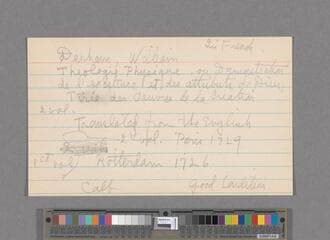 In French.
Derham, William
Theologie Physique, ou Demonstration
de l'existence et des attributs de Dieu,
des Oeuvres de la Creation
2 vol.
Translated from the English
2nd vol. Paris 1729
1st vol Rotterdam 1726
Calf good Condition